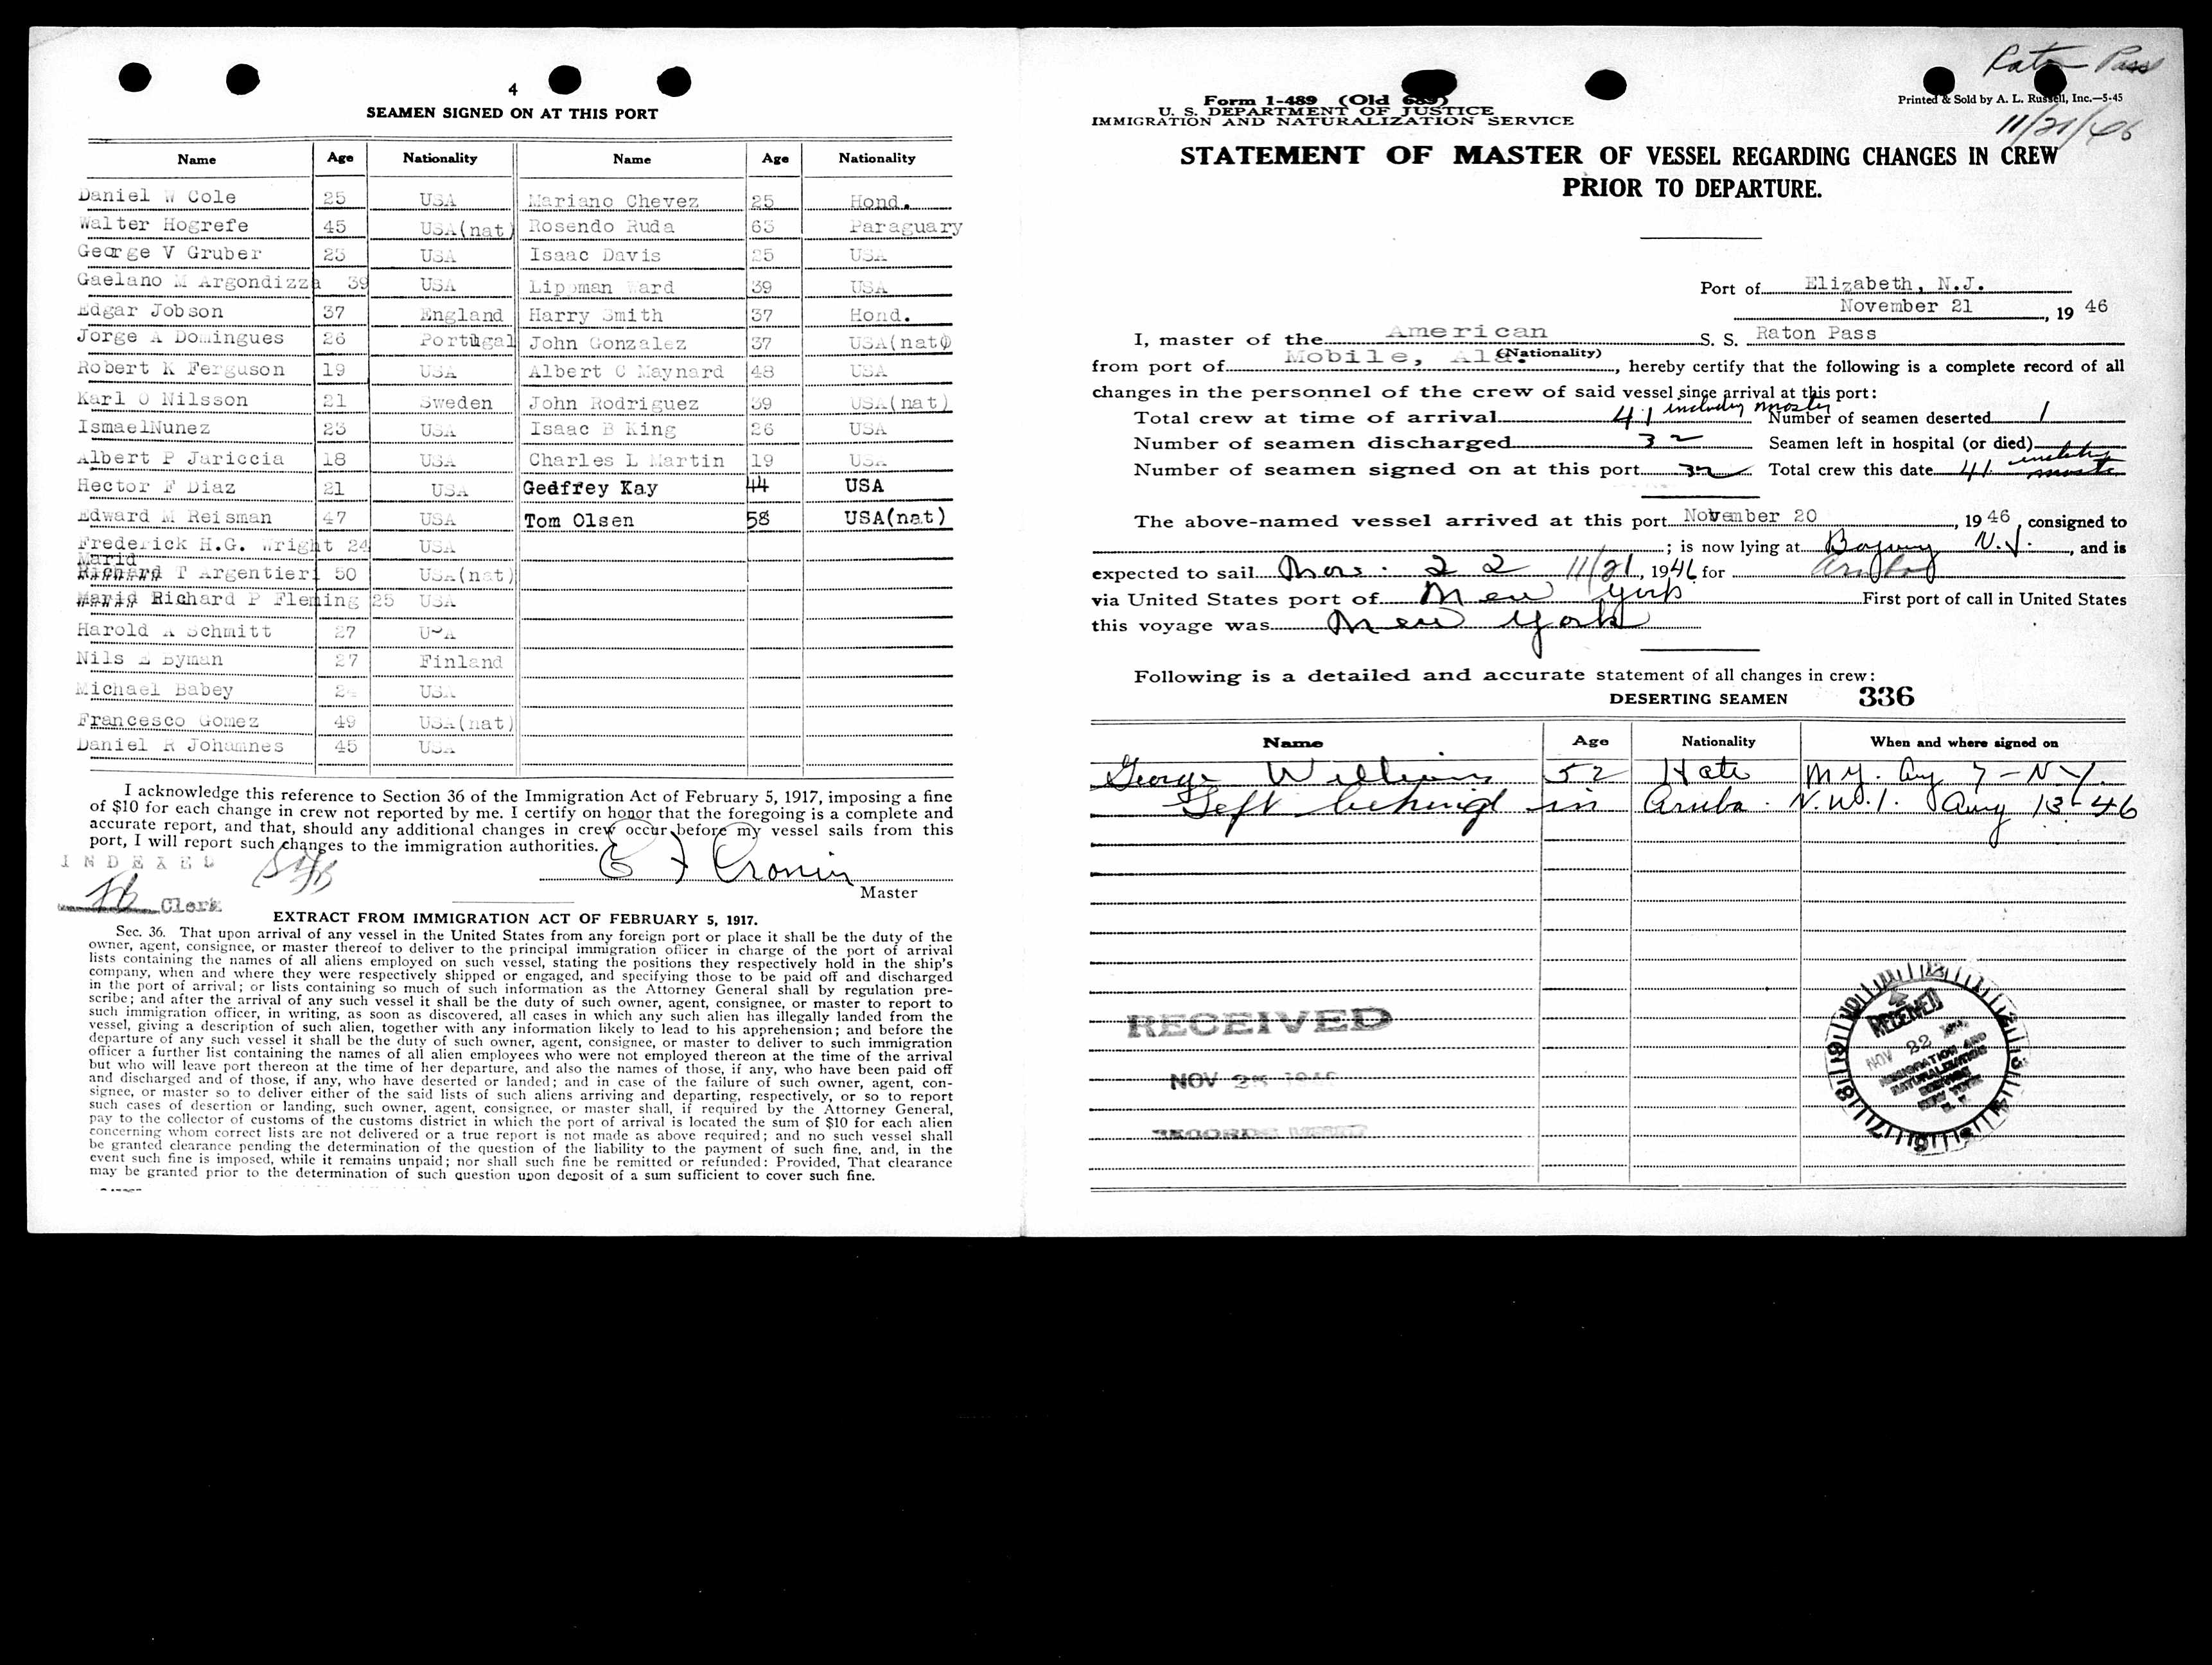 4
SEAMEN SIGNED ON AT THIS PORT
Name Age Nationality Name Age Nationality
Daniel W Cole 25 USA Mariano Chevez 25 Hond.
Walter Hogrefe 45 USA(nat) Rosendo Ruda 63 Paraguary
George V Gruber 23 USA Isaac Davis 25 USA
Gaelano M Argondizza 39 USA Lippman Ward 39 USA
Edgar Jobson 37 England Harry Smith 37 Hond.
Jorge A Domingues 26 Portugal John Gonzalez 37 USA(nat)
Robert K Ferguson 19 USA Albert C Maynard 48 USA
Karl O Nilsson 21 Sweden John Rodriguez 39 USA(nat)
IsmaelNunez 23 USA Isaac B King 26 USA
Albert P Jariccia 18 USA Charles L Martin 19 USA
Hector F Diaz 21 USA Geoffrey Kay 44 USA
Edward M Reisman 47 USA Tom Olsen 58 USA(nat)
Frederick H.G. Wright 24 USA
Marid
Richard T Argentieri 50 USA(nat)
Marid Richard P Fleming 25 USA
Harold A Schmitt 27 USA
Nils E Byman 27 Finland
Michael Babey USA
Francesco Gomez 49 USA(nat)
Daniel R Johannes 45 USA
I acknowledge this reference to Section 36 of the Immigration Act of February 5, 1917, imposing a fine
of $10 for each change in crew not reported by me. I certify on honor that the foregoing is a complete and
accurate report, and that, should any additional changes in crew occur before my vessel sails from this
port, I will report such changes to the immigration authorities.
INDEXED
E J Cronin
Master
Clerk
EXTRACT FROM IMMIGRATION ACT OF FEBRUARY 5, 1917.
Sec. 36. That upon arrival of any vessel in the United States from any foreign port or place it shall be the duty of the
owner, agent, consignee, or master thereof to deliver to the principal immigration officer in charge of the port of arrival
lists containing the names of all aliens employed on such vessel, stating the positions they respectively hold in the ship's
company, when and where they were respectively shipped or engaged, and specifying those to be paid off and discharged
in the port of arrival; or lists containing so much of such information as the Attorney General shall by regulation pre-
scribe; and after the arrival of any such vessel it shall be the duty of such owner, agent, consignee, or master to report to
such immigration officer, in writing, as soon as discovered, all cases in which any such alien has illegally landed from the
vessel, giving a description of such alien, together with any information likely to lead to his apprehension; and before the
departure of any such vessel it shall be the duty of such owner, agent, consignee, or master to deliver to such immigration
officer a further list containing the names of all alien employees who were not employed thereon at the time of the arrival
but who will leave port thereon at the time of her departure, and also the names of those, if any, who have been paid off
and discharged and of those, if any, who have deserted or landed; and in case of the failure of such owner, agent, con-
signee, or master so to deliver either of the said lists of such aliens arriving and departing, respectively, or so to report
such cases of desertion or landing, such owner, agent, consignee, or master shall, if required by the Attorney General,
pay to the collector of customs of the customs district in which the port of arrival is located the sum of $10 for each alien
concerning whom correct lists are not delivered or a true report is not made as above required; and no such vessel shall
be granted clearance pending the determination of the question of the liability to the payment of such fine, and, in the
event such fine is imposed, while it remains unpaid; nor shall such fine be remitted or refunded: Provided, That clearance
may be granted prior to the determination of such question upon deposit of a sum sufficient to cover such fine.
Raton Pass
11/21/46
Form 1-489 (Old 689)
U. S. DEPARTMENT OF JUSTICE
IMMIGRATION AND NATURALIZATION SERVICE
Printed & Sold by A. L. Russell, Inc.—5-45
STATEMENT OF MASTER OF VESSEL REGARDING CHANGES IN CREW
PRIOR TO DEPARTURE.
Port of Elizabeth, N.J.
November 21, 19 46
I, master of the American S. S. Raton Pass
(Nationality)
from port of Mobile, Ala., hereby certify that the following is a complete record of all
changes in the personnel of the crew of said vessel since arrival at this port:
Total crew at time of arrival 41 including master Number of seamen deserted 1
Number of seamen discharged 32 Seamen left in hospital (or died)
Number of seamen signed on at this port 32 Total crew this date 41 including master
The above-named vessel arrived at this port November 20, 19 46, consigned to
; is now lying at Bayway N.J., and is
expected to sail Nov. 22 11/21, 1946 for Aruba
via United States port of New York First port of call in United States
this voyage was New York
Following is a detailed and accurate statement of all changes in crew:
DESERTING SEAMEN 336
Name Age Nationality When and where signed on
George William 52 N.Y. Aug 7 - N.Y.
Left behind in Aruba N.W.I. Aug 13-46
RECEIVED
NOV 1946
RECEIVED
NOV 22
IMMIGRATION AND
NATURALIZATION
SERVICE
NEW YORK
N. Y.